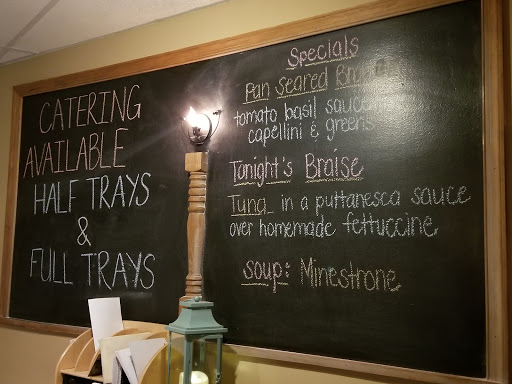 CATERING
AVAILABLE
HALF TRAYS
&
FULL TRAYS
Specials
Pan Seared
tomato basil sauce
capellini & greens
Tonight's Braise
Tuna in a puttanesca sauce
over homemade fettuccine
Soup: Minestrone